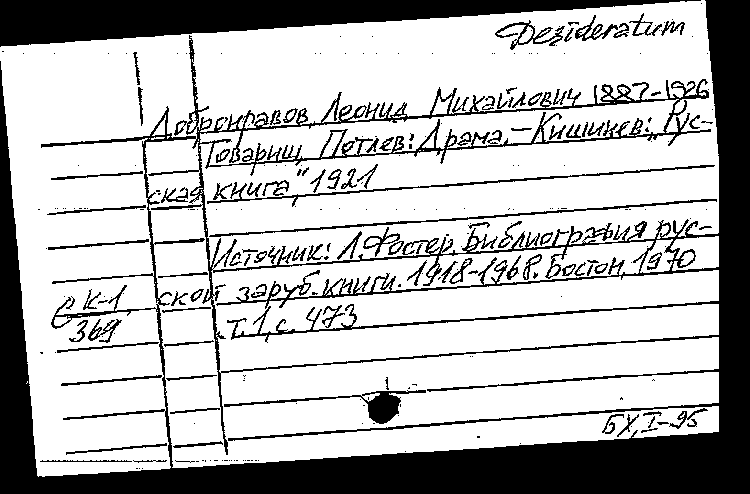 Desideratum
Добронравов, Леонид Михайлович 1887-1926
Товарищ Петлев: Драма. – Кишинев: „Рус-
ская книга”, 1921
Источник: Л. Фостер. Библиография рус-
ской заруб. книги. 1918-1968. Бостон, 1970
т. 1, с. 473
К-1
369
БХ, I-95